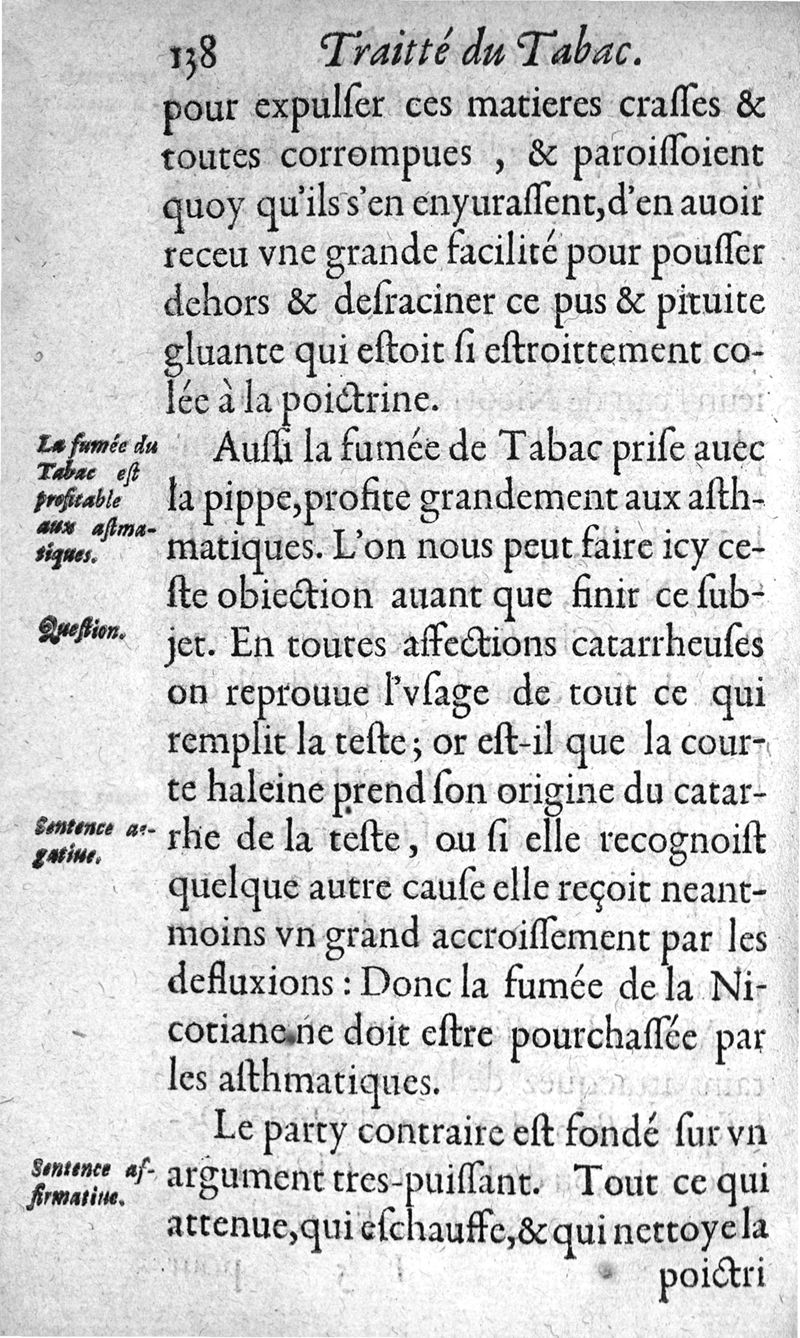 138 Traitté du Tabac.
pour expulſer ces matieres craſſes &
toutes corrompues , & paroiſſoient
quoy qu'ils s'en enyuraſſent, d'en auoir
receu vne grande facilité pour pouſſer
dehors & deſraciner ce pus & pituite
gluante qui eſtoit ſi eſtroittement co-
lée à la poictrine.
La fumée du
Tabac eſt
profitable
aux aſtma-
tiques.
Auſſi la fumée de Tabac priſe auec
la pippe, profite grandement aux aſth-
matiques. L'on nous peut faire icy ce-
ſte obiection auant que finir ce ſub-
Question.
jet. En toutes affections catarrheuſes
on reprouue l'vſage de tout ce qui
remplit la teſte ; or eſt-il que la cour-
te haleine prend ſon origine du catar-
Sentence ne-
gatiue.
rhe de la teſte, ou ſi elle recognoiſt
quelque autre cauſe elle reçoit neant-
moins vn grand accroiſſement par les
defluxions : Donc la fumée de la Ni-
cotiane ne doit eſtre pourchaſſée par
les aſthmatiques.
Le party contraire eſt fondé ſur vn
Sentence af-
firmatiue.
argument tres-puiſſant. Tout ce qui
attenue, qui eſchauffe, & qui nettoye la
poictri